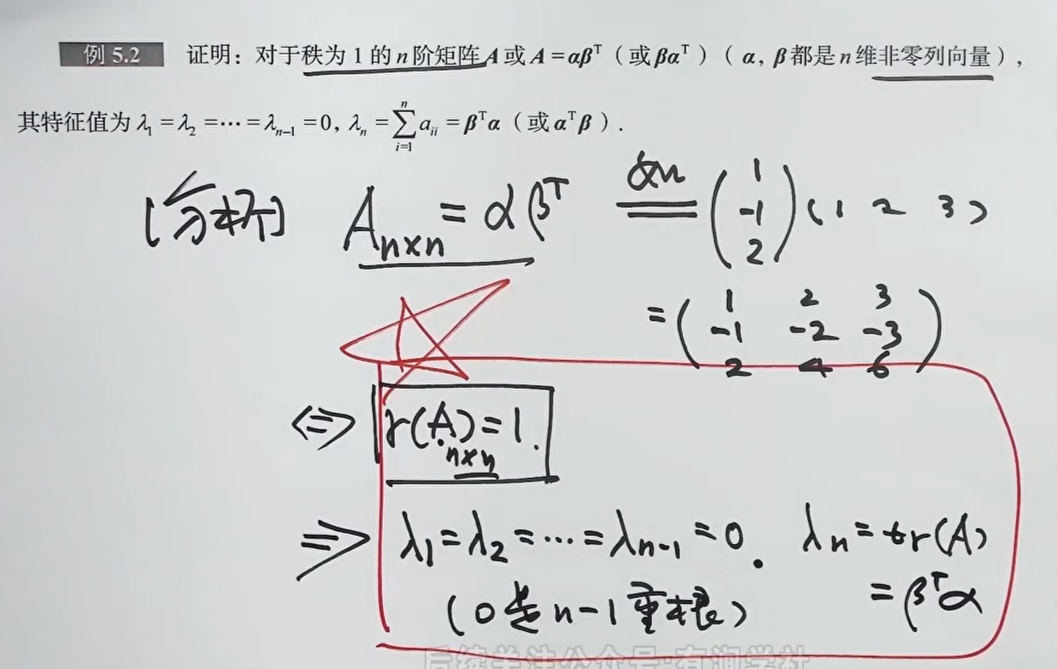 例 5.2 证明：对于秩为 1 的 n 阶矩阵 A 或 A = αβᵀ（或 βαᵀ）（α, β 都是 n 维非零列向量），
其特征值为 λ₁ = λ₂ = ⋯ = λₙ₋₁ = 0, λₙ = ∑ᵢ₌₁ⁿ aᵢᵢ = βᵀα（或 αᵀβ）.
[分析] Aₙₓₙ = αβᵀ 如 (1 -1 2) (1 2 3)
= (1 2 3
-1 -2 -3
2 4 6)
⇔ r(Aₙₓₙ) = 1.
⇒ λ₁ = λ₂ = ⋯ = λₙ₋₁ = 0. λₙ = tr(A)
(0是n-1重根) = βᵀα